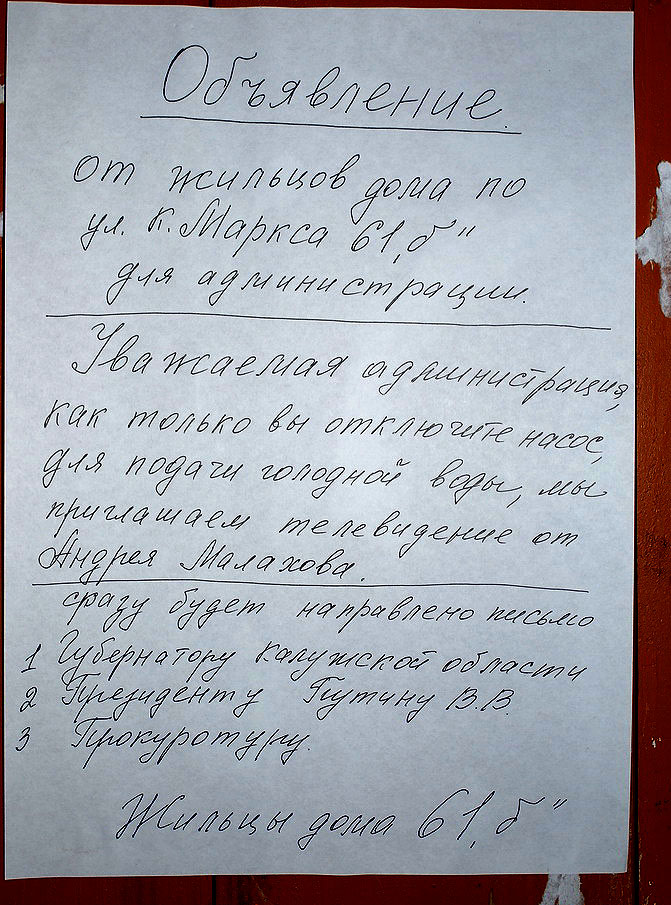 Объявление.
от жильцов дома по
ул. К. Маркса 61 „б"
для администрации.
Уважаемая администрация,
как только вы отключите насос,
для подачи голодной воды, мы
приглашаем телевидение от
Андрея Малахова.
сразу будет направлено письмо
1 Губернатору Калужской области
2 Президенту Путину В.В.
3 Прокуротуру.
Жильцы дома 61 „б"